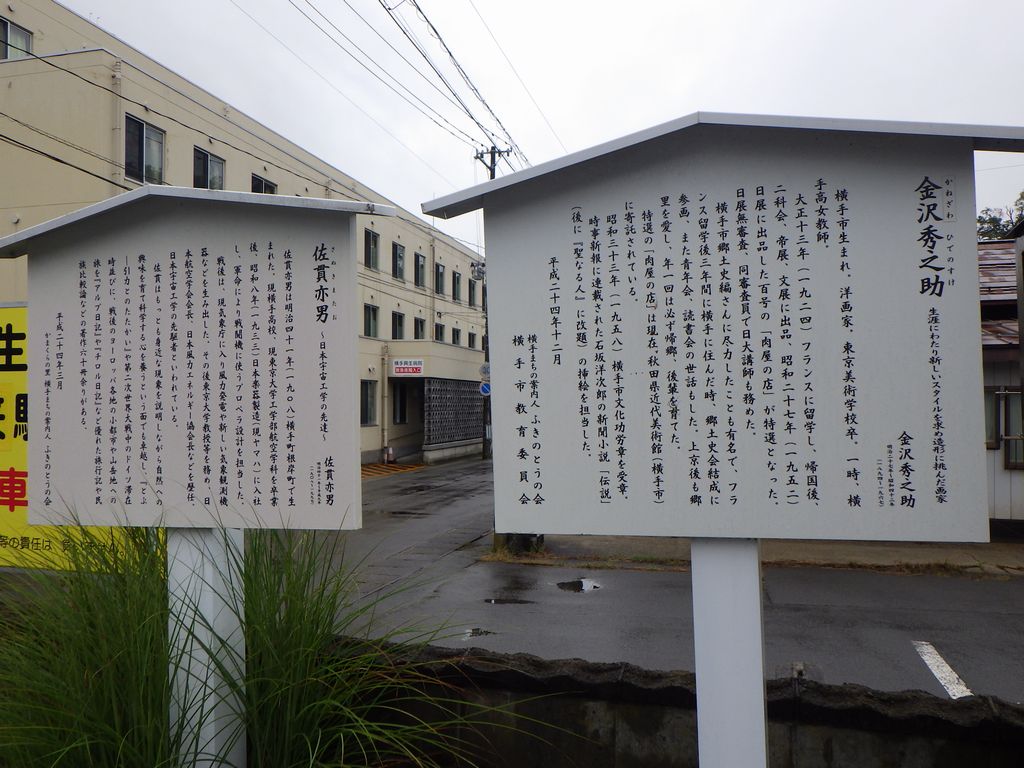 かねざわ ひでのすけ
金沢秀之助
生涯にわたり新しいスタイルを求め造形に挑んだ画家
金沢秀之助
明治二十七年～昭和四十二年
(一八九四～一九六七)
横手市生まれ、洋画家、東京美術学校卒、一時、横
手高女教師。
大正十三年(一九二四)フランスに留学し、帰国後、
二科会、帝展、文展に出品、昭和二十七年(一九五二)
日展に出品した百号の「肉屋の店」が特選となった。
日展無審査、同審査員で日大講師も務めた。
横手市郷土史編さんに尽力したことも有名で、フラ
ンス留学後三年間に横手に住んだ時、郷土史会結成に
参画、また青年会、読書会の世話もした。上京後も郷
里を愛し、年一回は必ず帰郷、後輩を育てた。
特選の「肉屋の店」は現在、秋田県近代美術館(横手市)
に寄託されている。
昭和三十三年(一九五八)横手市文化功労章を受章、
時事新報に連載された石坂洋次郎の新聞小説「伝説」
(後に『聖なる人』に改題)の挿絵を担当した。
平成二十四年十二月
横手まちの案内人 ふきのとうの会
横手市教育委員会
さぬき またお
佐貫亦男
～日本宇宙工学の先達～
佐貫亦男
明治四十一年～平成九年
(一九〇八～一九九七)
佐貫亦男は明治四十一年(一九〇八)横手町根岸町で生
まれた。現横手高校、現東京大学工学部航空学科を卒業
後、昭和八年(一九三三)日本楽器製造(現ヤマハ)に入社
し、軍命により戦闘機に使うプロペラ設計を担当した。
戦後は、現気象庁に入り風力発電や新しい気象観測機
器などを生み出した。その後東京大学教授等を務め、日
本航空学会会長、日本風力エネルギー協会長などを歴任
日本宇宙工学の先駆者といわれている。
佐貫はもっとも身近な現象を説明しながら自然への
興味を育て科学する心を養うという面でも卓越し、「とぶ
―引力とのたたかい」や第二次世界大戦中のドイツ滞在
時並びに、戦後のヨーロッパ各地の小都市や山岳地への
旅を「アルプ日記」や「チロル日記」など優れた旅行記や民
族比較論などの著作六十冊余りがある。
平成二十四年三月
かまくらの里 横手まちの案内人 ふきのとうの会
車
等の責任は